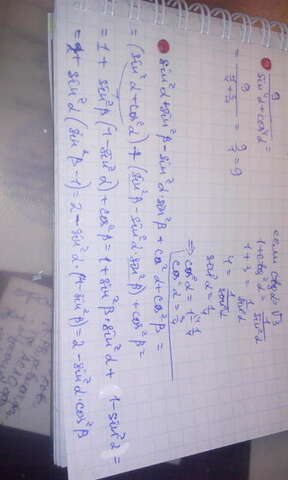 9
sin²α+cos²α =
= 9 / (1/4 + 3/4) = 9/1 = 9
если ctgα = √3
1+ctg²α = 1/sin²α
1+3 = 1/sin²α
4 = 1/sin²α
sin²α = 1/4
⇒ cos²α = 1 - 1/4
cos²α = 3/4
sin²α + sin²β - sin²α · sin²β + cos²α · cos²β =
= (sin²α + cos²α) + (sin²β - sin²α · sin²β) + cos²β =
= 1 + sin²β (1 - sin²α) + cos²β = 1 + sin²β · sin²α + 1 - sin²α =
= 2 + sin²α (sin²β - 1) = 2 - sin²α · (1 - sin²β) = 2 - sin²α · cos²β